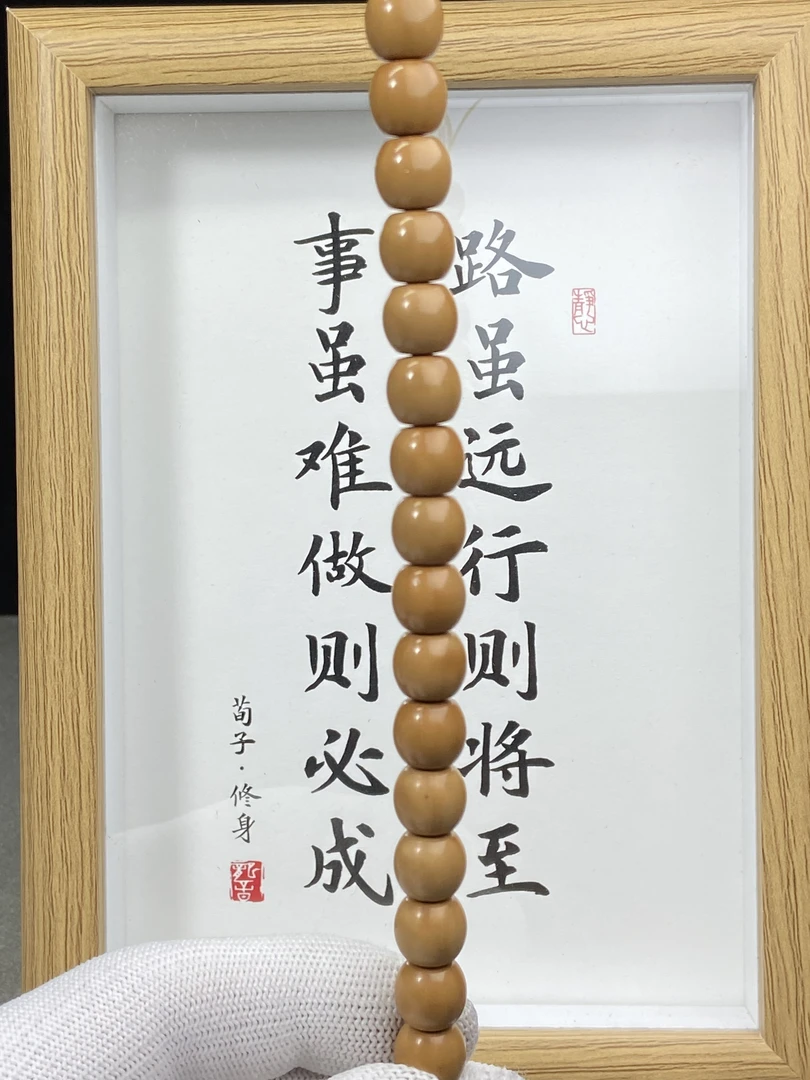 路虽远行则将至
事虽难做则必成
荀子·修身
靜心